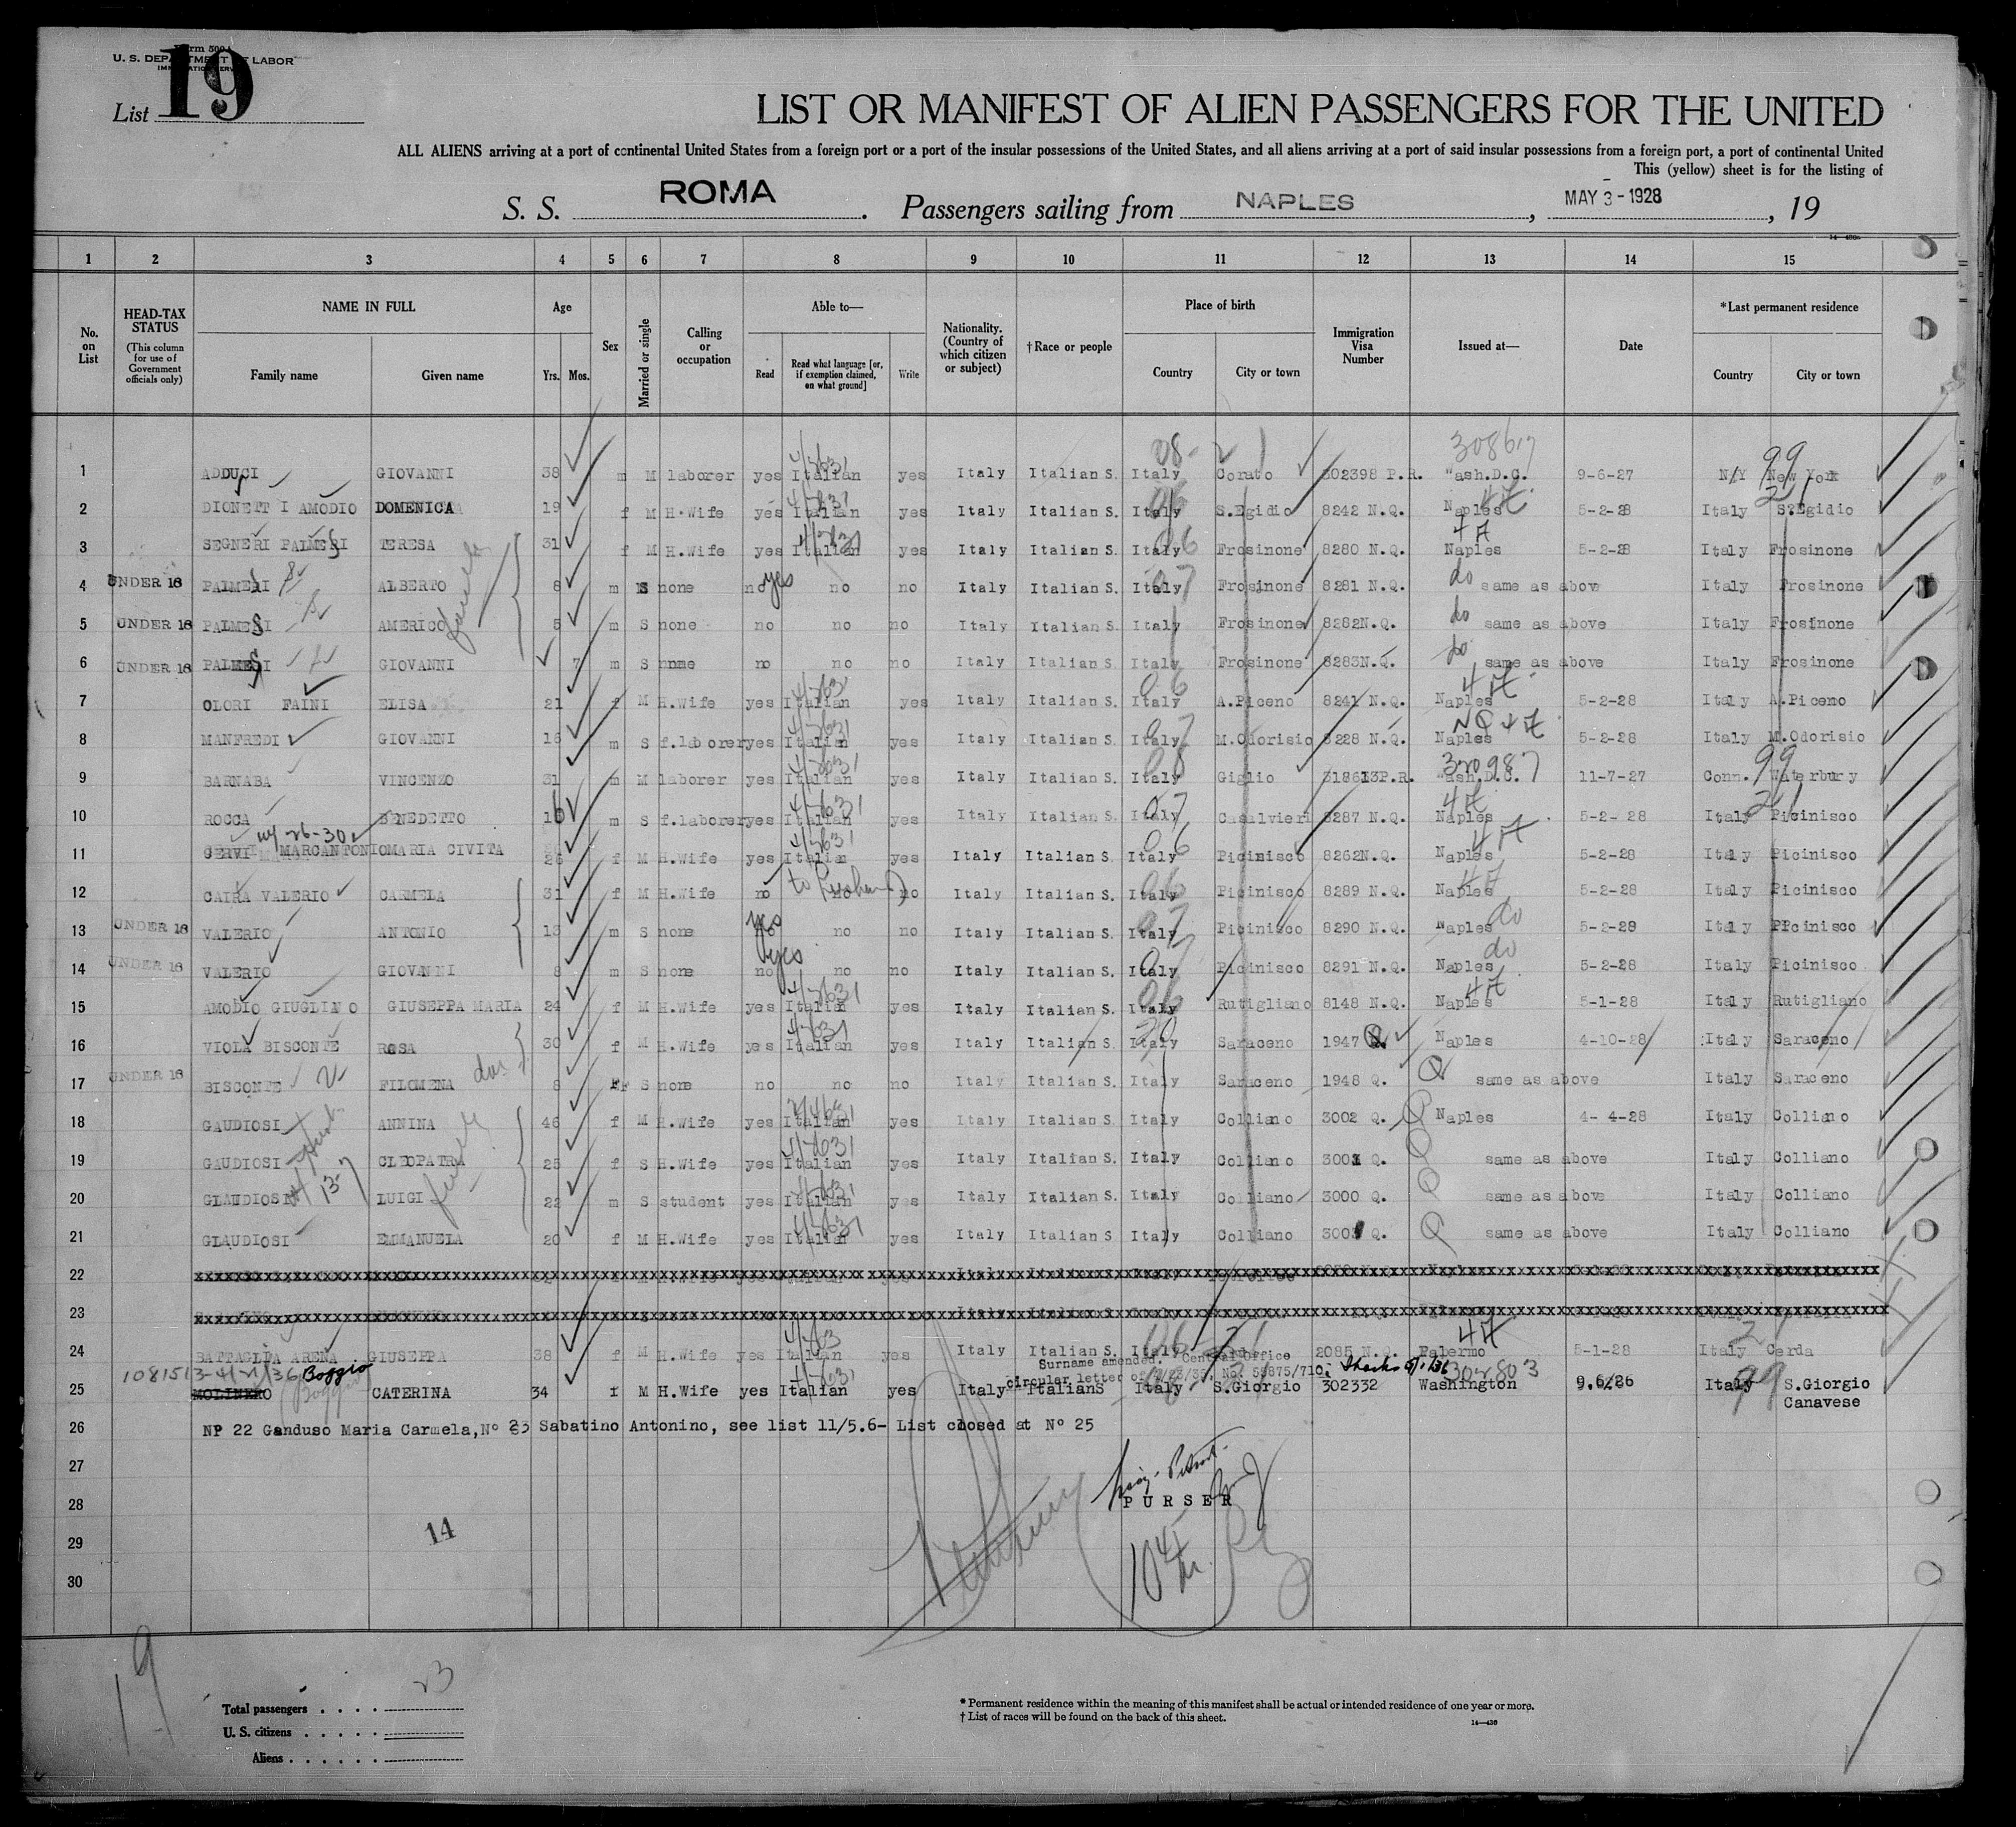 Form 500
U. S. DEPARTMENT OF LABOR
IMMIGRATION SERVICE
List 19
LIST OR MANIFEST OF ALIEN PASSENGERS FOR THE UNITED
ALL ALIENS arriving at a port of continental United States from a foreign port or a port of the insular possessions of the United States, and all aliens arriving at a port of said insular possessions from a foreign port, a port of continental United
This (yellow) sheet is for the listing of
S. S. ROMA. Passengers sailing from NAPLES, MAY 3 - 1928, 19
1 2 3 4 5 6 7 8 9 10 11 12 13 14 15
No. on List
HEAD-TAX STATUS (This column for use of Government officials only)
NAME IN FULL Family name Given name
Age Yrs. Mos.
Sex
Married or single
Calling or occupation
Able to— Read Read what language [or, if exemption claimed, on what ground] Write
Nationality. (Country of which citizen or subject)
†Race or people
Place of birth Country City or town
Immigration Visa Number
Issued at—
Date
*Last permanent residence Country City or town
1 ADDUCI GIOVANNI 38 m M laborer yes Italian yes Italy Italian S. Italy Corato 302398 P.R. Wash.D.C. 9-6-27 N.Y New York
2 DIONETTI AMODIO DOMENICA 19 f M H.Wife yes Italian yes Italy Italian S. Italy S.Egidio 8242 N.Q. Naples 5-2-28 Italy S.Egidio
3 SEGNERI PALMESI TERESA 31 f M H.Wife yes Italian yes Italy Italian S. Italy Frosinone 8280 N.Q. Naples 5-2-28 Italy Frosinone
4 UNDER 16 PALMESI ALBERTO 8 m S none no yes no no Italy Italian S. Italy Frosinone 8281 N.Q. do same as above Italy Frosinone
5 UNDER 16 PALMESI AMERICO 5 m S none no no no Italy Italian S. Italy Frosinone 8282N.Q. do same as above Italy Frosinone
6 UNDER 16 PALMESI GIOVANNI 7 m S none no no no Italy Italian S. Italy Frosinone 8283N.Q. do same as above Italy Frosinone
7 OLORI FAINI ELISA 21 f M H.Wife yes Italian yes Italy Italian S. Italy A.Piceno 8241 N.Q. Naples 5-2-28 Italy A.Piceno
8 MANFREDI GIOVANNI 16 m S f.laborer yes Italian yes Italy Italian S. Italy M.Odorisio 8228 N.Q. Naples 5-2-28 Italy M.Odorisio
9 BARNABA VINCENZO 31 m M laborer yes Italian yes Italy Italian S. Italy Giglio 318613P.R. Wash.D.C. 11-7-27 Conn. Waterbury
10 ROCCA BENEDETTO 16 m S f.laborer yes Italian yes Italy Italian S. Italy Casalvieri 8287 N.Q. Naples 5-2-28 Italy Picinisco
11 CERVI MARCANTONIO MARIA CIVITA 26 f M H.Wife yes Italian yes Italy Italian S. Italy Picinisco 8262N.Q. Naples 5-2-28 Italy Picinisco
12 CAIRA VALERIO CARMELA 31 f M H.Wife no no no Italy Italian S. Italy Picinisco 8289 N.Q. Naples 5-2-28 Italy Picinisco
13 UNDER 16 VALERIO ANTONIO 13 m S none yes no no Italy Italian S. Italy Picinisco 8290 N.Q. Naples do 5-2-28 Italy Picinisco
14 UNDER 16 VALERIO GIOVANNI 8 m S none no yes no no Italy Italian S. Italy Picinisco 8291 N.Q. Naples do 5-2-28 Italy Picinisco
15 AMODIO GIUGLIANO GIUSEPPA MARIA 24 f M H.Wife yes Italian yes Italy Italian S. Italy Rutigliano 8148 N.Q. Naples 5-1-28 Italy Rutigliano
16 VIOLA BISCONTE ROSA 30 f M H.Wife yes Italian yes Italy Italian S. Italy Saraceno 1947 Q. Naples 4-10-28 Italy Saraceno
17 UNDER 16 BISCONTE FILOMENA 8 f S none no no no Italy Italian S. Italy Saraceno 1948 Q. same as above Italy Saraceno
18 GAUDIOSI ANNINA 46 f M H.Wife yes Italian yes Italy Italian S. Italy Colliano 3002 Q. Naples 4-4-28 Italy Colliano
19 GAUDIOSI CLEOPATRA 25 f S H.Wife yes Italian yes Italy Italian S. Italy Colliano 3001 Q. same as above Italy Colliano
20 GLAUDIOSI LUIGI 22 m S student yes Italian yes Italy Italian S. Italy Colliano 3000 Q. same as above Italy Colliano
21 GLAUDIOSI EMMANUELA 20 f M H.Wife yes Italian yes Italy Italian S. Italy Colliano 3003 Q. same as above Italy Colliano
22
23
24 BATTAGLIA ARENA GIUSEPPA 38 f M H.Wife yes Italian yes Italy Italian S. Italy 2085 N.Q. Palermo 5-1-28 Italy Cerda
Surname amended. Central Office
circular letter of No. 55875/710.
1081513-4/21/36 Boggio
25 MOLINERO CATERINA 34 f M H.Wife yes Italian yes Italy ItalianS Italy S.Giorgio 302332 Washington 9.6/26 Italy S.Giorgio Canavese
26 NP 22 Ganduso Maria Carmela, No 23 Sabatino Antonino, see list 11/5.6- List closed at No 25
27
28 PURSER
29 14
30
19
Total passengers . . . . 23
U. S. citizens . . . . .
Aliens . . . . . .
* Permanent residence within the meaning of this manifest shall be actual or intended residence of one year or more.
† List of races will be found on the back of this sheet.
14—436